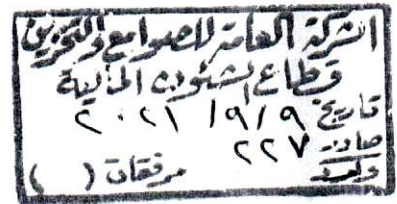 الشركة العامة للصوامع والتخزين
قطاع الشئون المالية
تاريخ ٩ / ٩ / ٢٠٢١
صادر ٢٢٧
وارد مرفقات ( )